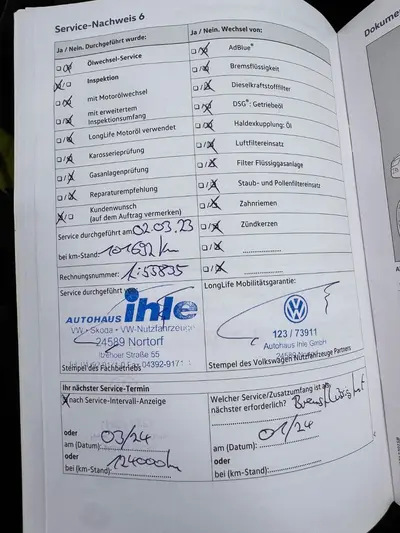 Service-Nachweis 6
Ja / Nein. Durchgeführt wurde:
Ölwechsel-Service
Inspektion
mit Motorölwechsel
mit erweitertem
Inspektionsumfang
LongLife Motoröl verwendet
Karosserieprüfung
Gasanlagenprüfung
Reparaturempfehlung
Kundenwunsch
(auf dem Auftrag vermerken)
Service durchgeführt am 02.03.23
bei km-Stand: 101692 km
Rechnungsnummer:
Service durchgeführt
AUTOHAUS ihle
VW • Skoda • VW-Nutzfahrzeuge
24589 Nortorf
Itzehoer Straße 55
Stempel des Fachbetriebs
Ja / Nein. Wechsel von:
AdBlue®
Bremsflüssigkeit
Dieselkraftstofffilter
DSG®: Getriebeöl
Haldexkupplung: Öl
Luftfiltereinsatz
Filter Flüssiggasanlage
Staub- und Pollenfiltereinsatz
Zahnriemen
Zündkerzen
LongLife Mobilitätsgarantie:
123 / 73911
Autohaus Ihle GmbH
24589 Nortorf
Stempel des Volkswagen Nutzfahrzeuge Partners
Ihr nächster Service-Termin
nach Service-Intervall-Anzeige
oder
am (Datum): 03/24
oder
bei (km-Stand): 124000 km
Welcher Service/Zusatzumfang ist am
nächster erforderlich? Bremsflüssigkeit
am (Datum): 01/24
oder
bei (km-Stand):
Dokume